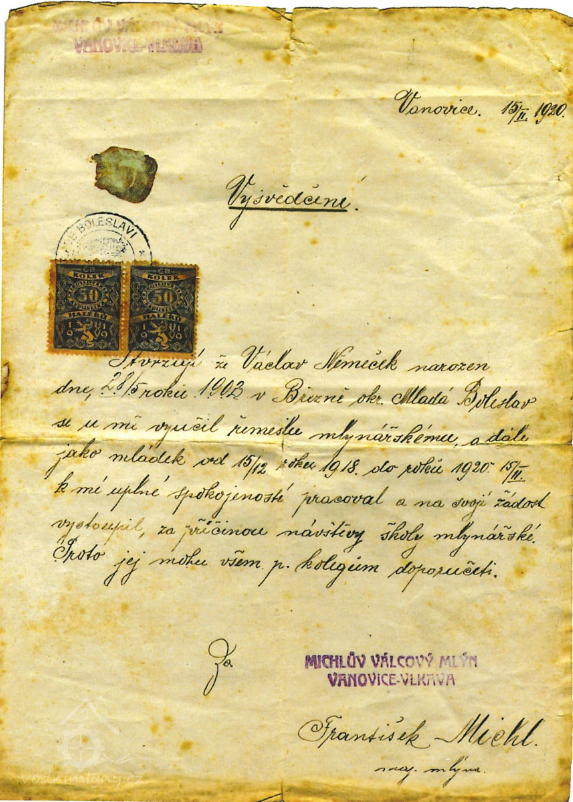 MICHLŮV VÁLCOVÝ MLÝN
VANOVICE-VLKAVA
Vanovice. 15/II. 1920.
Vysvědčení.
BOLESLAVI
KOLEK KOLEK
50 50
HALÉŘŮ HALÉŘŮ
1919 1919
Stvrzuji že Václav Němeček narozen
dne, 28/5 roku 1902 v Březně okr. Mladá Boleslav
se u mě vyučil řemeslu mlynářskému, a dále
jako mládek od 15/12 roku 1918. do roků 1920 15/II.
k mé uplné spokojenosti pracoval a na svoji žádost
vystoupil, za příčinou návštěvy školy mlynářské.
Proto jej mohu všem p. kolegům doporučeti.
Za
MICHLŮV VÁLCOVÝ MLÝN
VANOVICE-VLKAVA
František Michl.
maj. mlýna.
vodnimlyny.cz